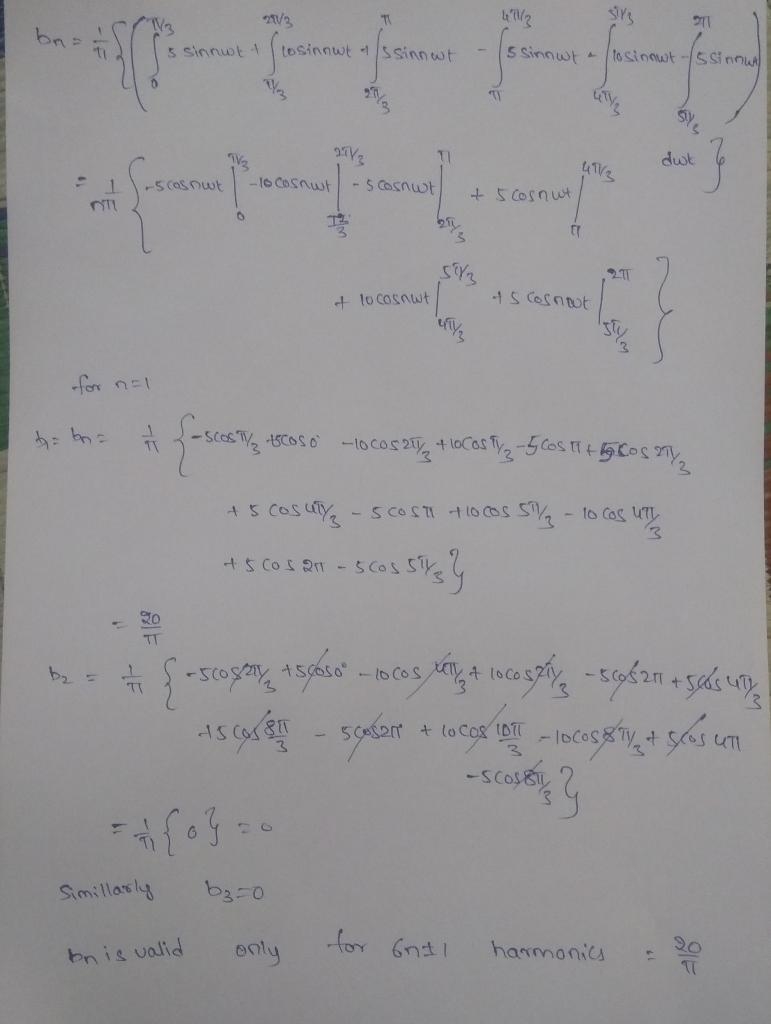 bn = 1/π { ( ∫₀^{π/3} 5 sinnwt + ∫_{π/3}^{2π/3} 10sinnwt + ∫_{2π/3}^{π} 5sinnwt - ∫_{π}^{4π/3} 5sinnwt - ∫_{4π/3}^{5π/3} 10sinnwt - ∫_{5π/3}^{2π} 5sinnwt )
dwt }
= 1/nπ { -5cosnwt |₀^{π/3} -10cosnwt |_{π/3}^{2π/3} -5cosnwt |_{2π/3}^{π} + 5cosnwt |_{π}^{4π/3}
+ 10cosnwt |_{4π/3}^{5π/3} +5cosnwt |_{5π/3}^{2π} }
for n=1
b₁= bn = 1/π { -5cosπ/3 +5cos0° -10cos2π/3 +10cosπ/3 -5cosπ + 5cos2π/3
+ 5 cos4π/3 - 5cosπ +10cos 5π/3 - 10cos 4π/3
+ 5cos2π - 5cos 5π/3 }
= 20/π
b₂ = 1/π { -5cos2π/3 +5cos0° -10cos 4π/3 + 10cos2π/3 -5cos2π + 5cos4π/3
+5cos8π/3 - 5cos2π + 10cos 10π/3 -10cos8π/3 + 5cos4π
-5cos
= 1/π { 0 } = 0
Simillarly b₃=0
bn is valid only for 6n±1 harmonics = 20/π